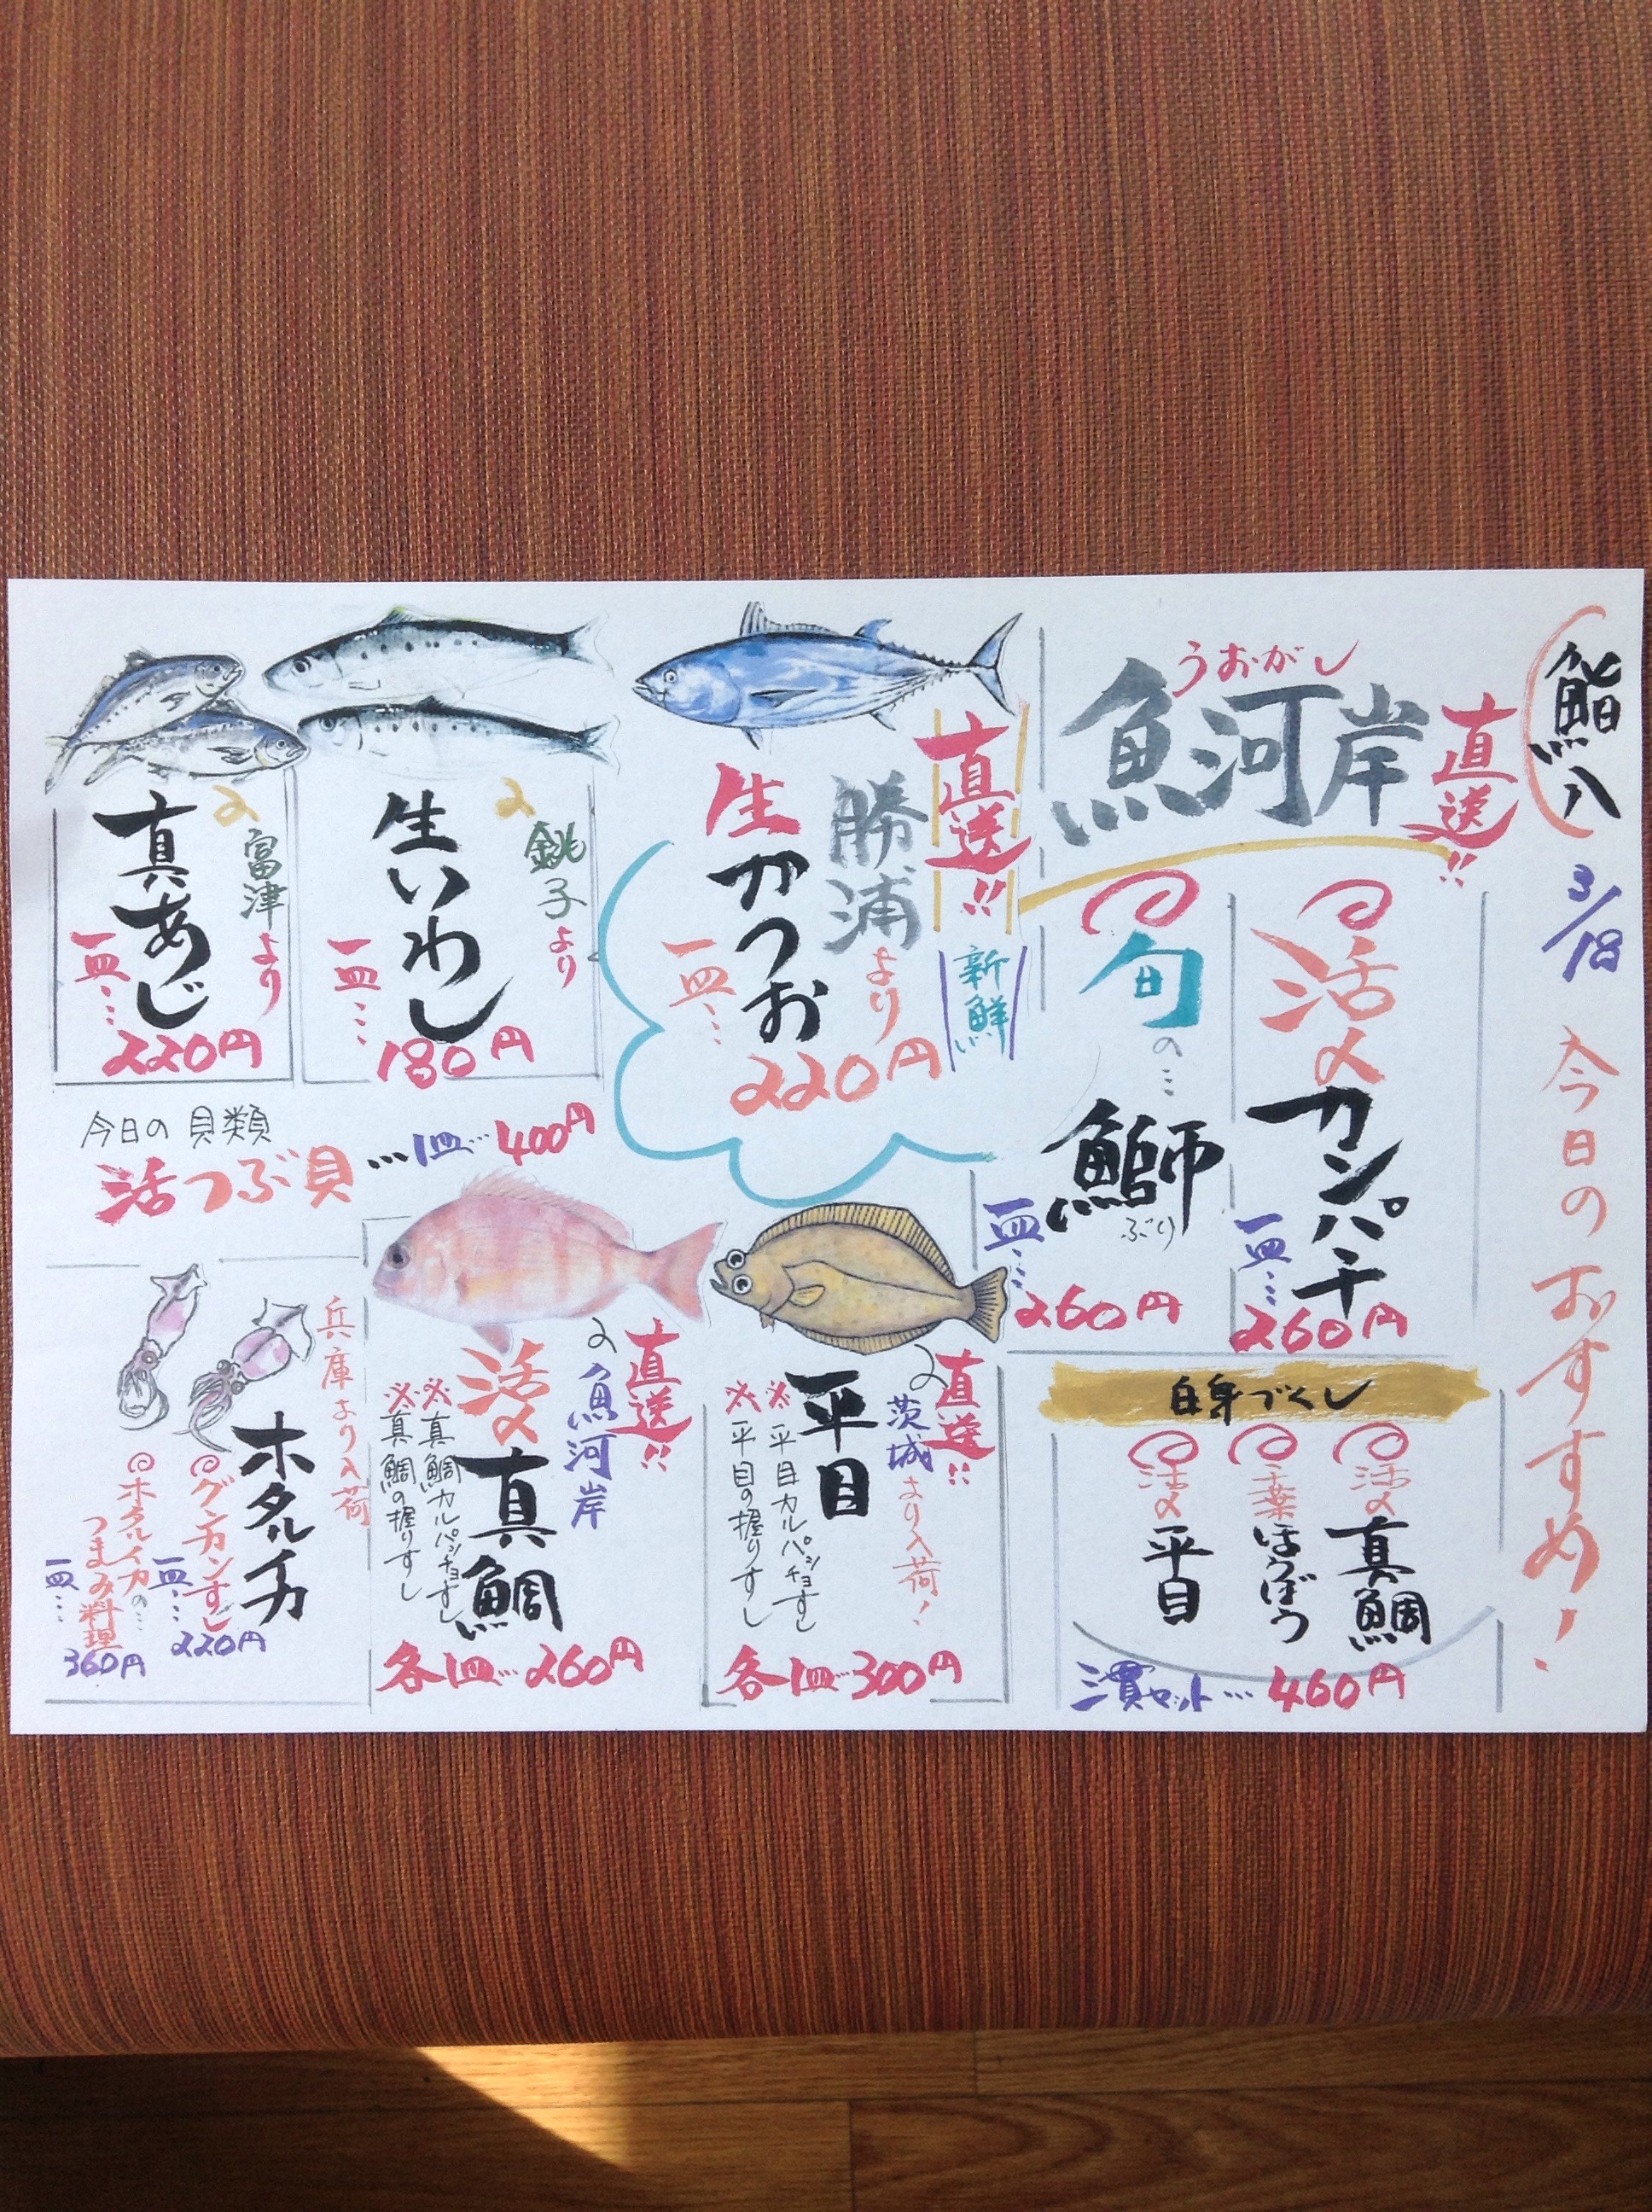 鮨八
3/18
今日のおすすめ!
うおがし
魚河岸
直送!!
活〆
カンパチ
一皿…
260円
旬の…
鰤
ぶり
一皿…
260円
白身づくし
活〆
真鯛
千葉
ほうぼう
活〆
平目
三貫セット… 460円
直送!!
新鮮
勝浦より
生かつお
一皿…
220円
銚子より
生いわし
一皿…
180円
富津より
真あじ
一皿…
220円
今日の貝類
活つぶ貝…1皿…400円
直送!!
茨城より入荷!
平目
※平目カルパッチョすし
※平目の握りすし
各1皿…300円
直送!!
魚河岸
活〆
真鯛
※真鯛カルパッチョすし
※真鯛の握りすし
各1皿…260円
兵庫より入荷
ホタルイカ
グンカンすし
一皿…
220円
ホタルイカの…
つまみ料理
一皿…
360円